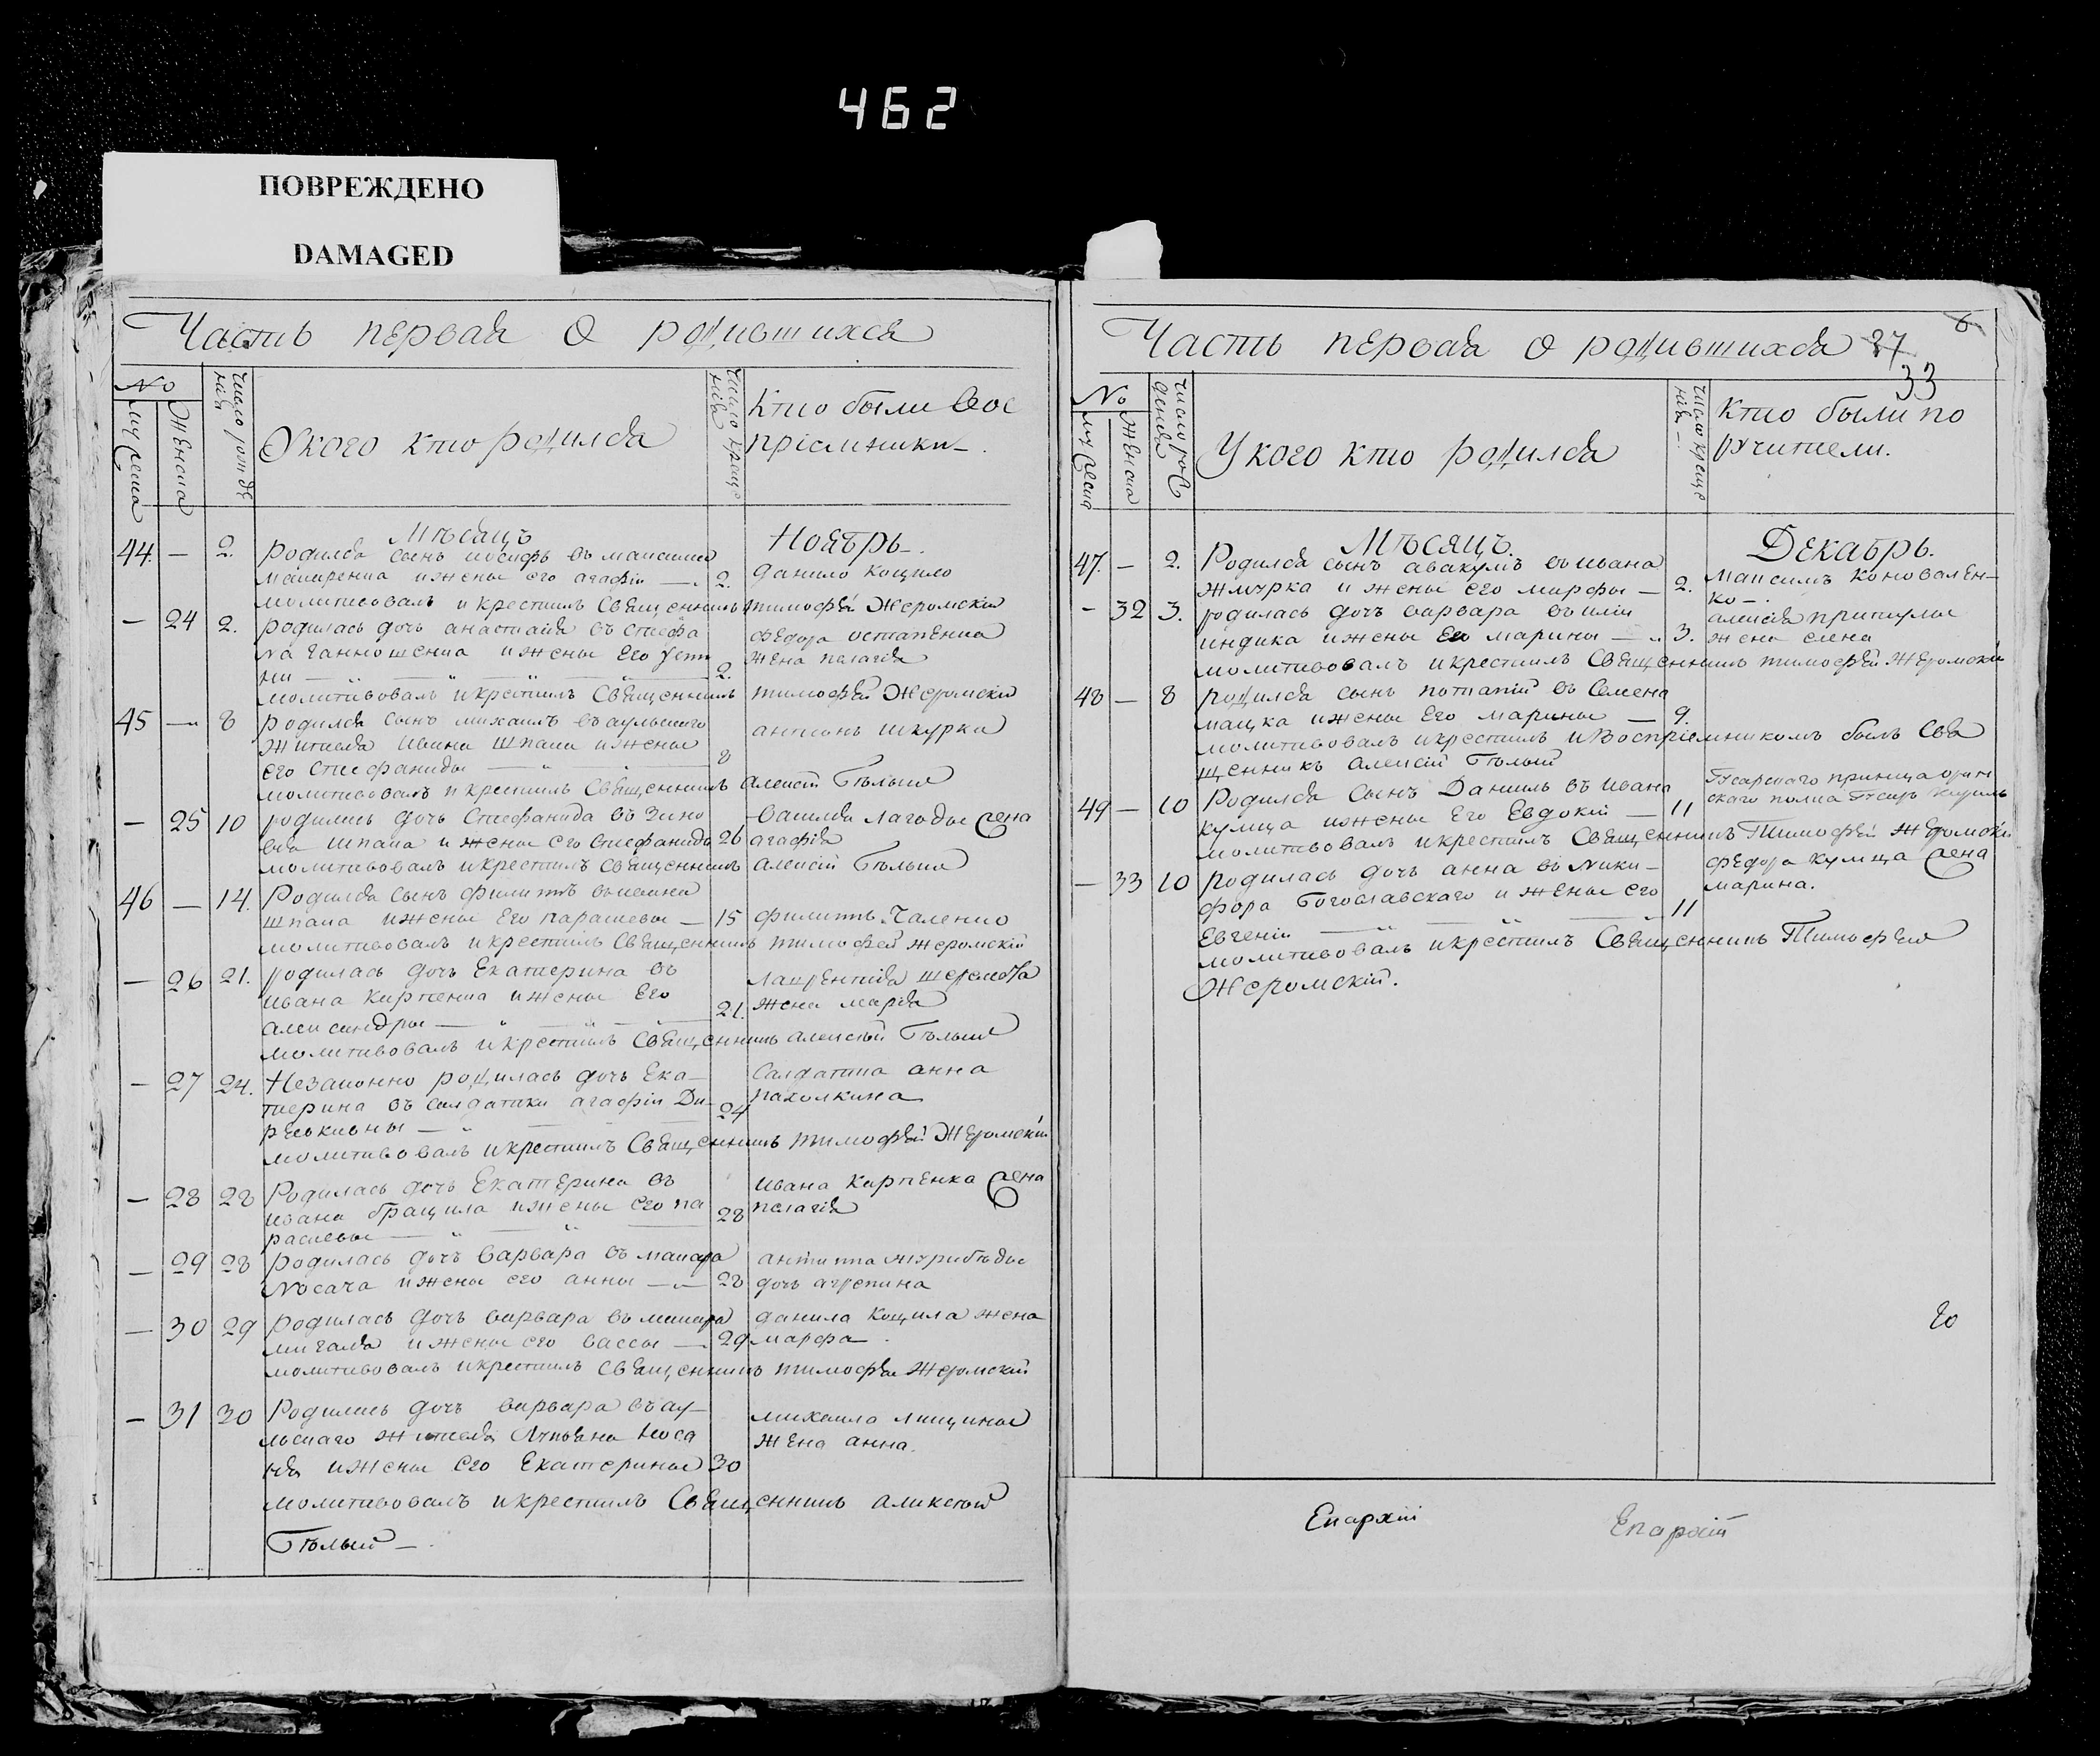 462
ПОВРЕЖДЕНО
DAMAGED
Часть первая о родившихся
No
мужеска
женска
Число рожде
нія
У кого кто родился
Число креще
нія
Кто были вос
пріємники
Мѣсяцъ Ноябрь
44. — 2. Родился сынъ іосифъ въ максима
и жены его агафіи — 2. данило Коцило
молитвовалъ и крестилъ Священникъ тимофей Жеромскій
— 24 2. родилась дочь анастасія въ стефа
на ганношенка и жены его усти
ніи — 2. федора остапенка
жена пелагія
молитвовалъ и крестилъ Священникъ тимофей Жеромскій
45 — 8 родился сынъ михаилъ въ аульского
жителя ивана шпака и жены
его Стефаниды — 8 антонъ шкурка
молитвовалъ и крестилъ Священникъ алексій Бѣлый
— 25 10 родилась дочь Стефанида въ зино
вія шпака и жены его Стефаниды 26 василія лагоды жена
агафія
молитвовалъ и крестилъ Священникъ алексій Бѣлый
46 — 14. Родился сынъ филиппъ
шпака и жены его параскевы — 15 филиппъ Чаленко
молитвовалъ и крестилъ Священникъ тимофей жеромскій
— 26 21. родилась дочь Екатерина въ
ивана Карпенка и жены его
александры — 21. лаврентія
жена марія
молитвовалъ и крестилъ Священникъ алексій Бѣлый
— 27 24. Незаконно родилась дочь Ека—
терина въ салдатки агафіи Ди
— 24 Салдатка анна
пахолкина
молитвовалъ и крестилъ Священникъ тимофей Жеромскій
— 28 28 Родилась дочь Екатерина въ
ивана бращила и жены его па
раскевы — 28 ивана Карпенка жена
пелагія
— 29 28 родилась дочь варвара въ макара
Носача и жены его анны — 28 антипа журибѣды
дочь агрепина
— 30 29 родилась дочь варвара въ макара
мигаля и жены его вассы — 29 данила Коцила жена
марфа
молитвовалъ и крестилъ священникъ тимофей Жеромскій
— 31 30 Родилась дочь варвара въ ау—
льскаго жителя Лукьяна Коса
и жены его Екатерины 30 михаила лищины
жена анна.
молитвовалъ и крестилъ Священникъ алексій
Бѣлый — .
Часть первая о родившихся
37
6
33
No
мужеска
женска
Число рож
денія
У кого кто родился
число креще
нія
Кто были по
ручители.
Мѣсяцъ. Декабрь.
47. — 2. Родился сынъ авакумъ въ ивана
жмурка и жены его марфы — 2. максимъ коновален—
ко — .
— 32 3. родилась дочь варвара въ иліи
индика и жены его марины — 3. алексія припулы
жена елена
молитвовалъ и крестилъ Священникъ тимофей Жеромскій
48 — 8 родился сынъ потапій въ Семена
мацка и жены его марины — 9.
молитвовалъ и крестилъ и Воспріемникомъ былъ Свя
щенникъ алексій Бѣлый
49 — 10 Родился Сынъ Даніилъ въ ивана
кулица и жены его Евдокіи — 11 Гусарскаго принца оран
скаго полка
молитвовалъ и крестилъ Священникъ Тимофей Жеромскій
— 33 10 родилась дочь анна въ Ники—
фора Богославскаго и жены его
Евгеніи — 11 федора кулица жена
марина.
молитвовалъ и крестилъ Священникъ Тимофей
Жеромскій.
Епархіи Епархіи